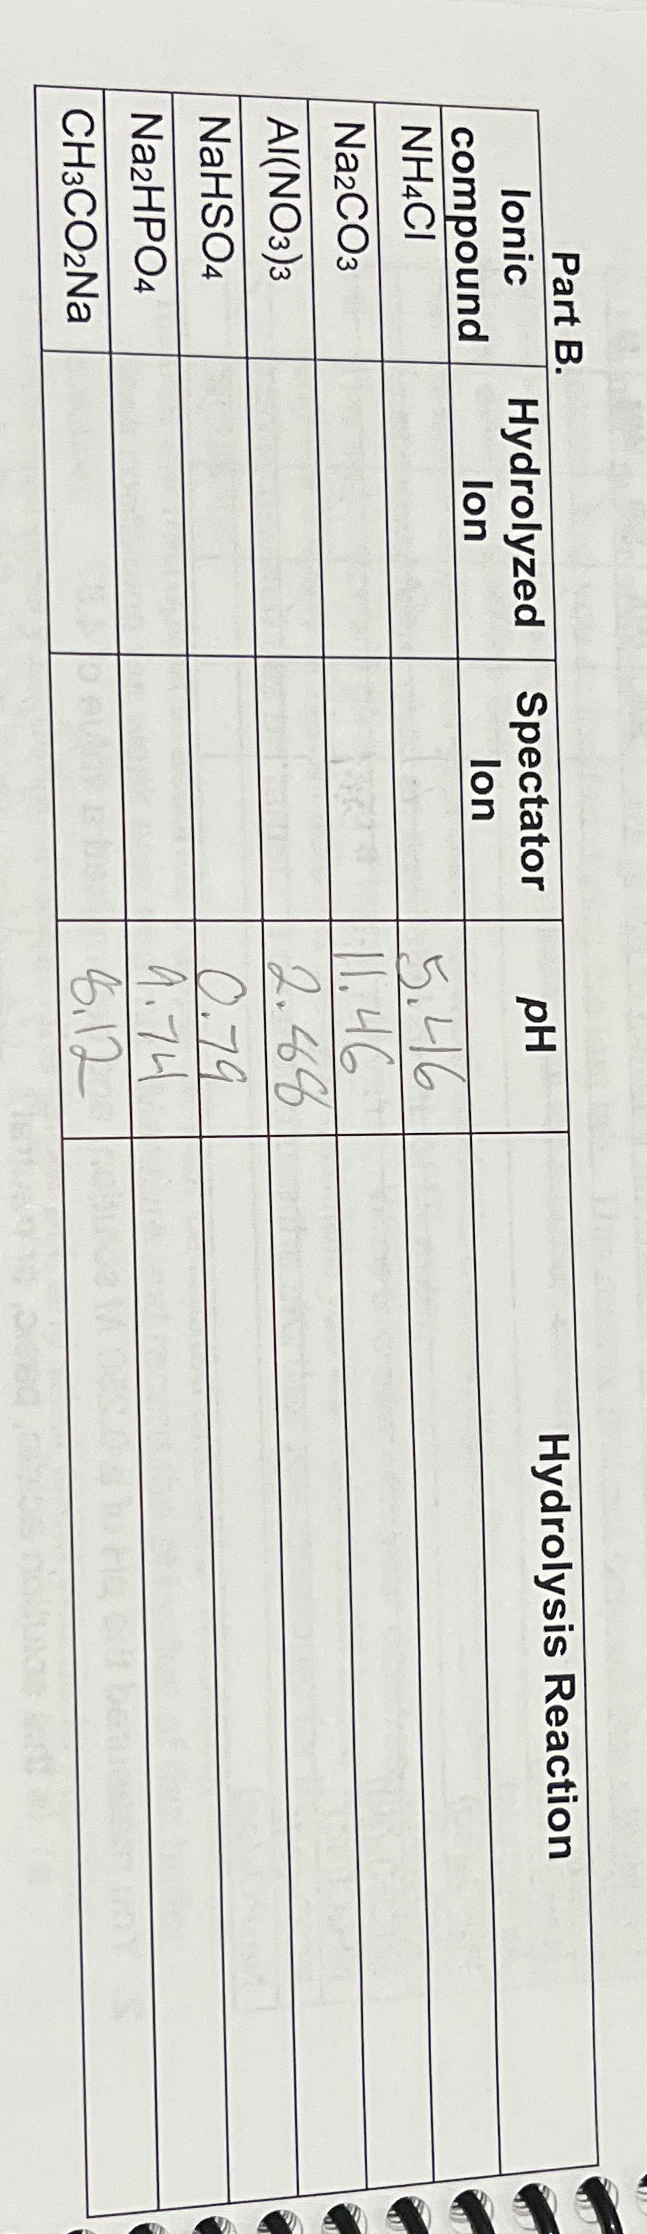 Part B.
Ionic compound Hydrolyzed Ion Spectator Ion pH Hydrolysis Reaction
NH4Cl 5.46
Na2CO3 11.46
Al(NO3)3
NaHSO4 0.79
Na2HPO4 9.74
CH3CO2Na 8.12